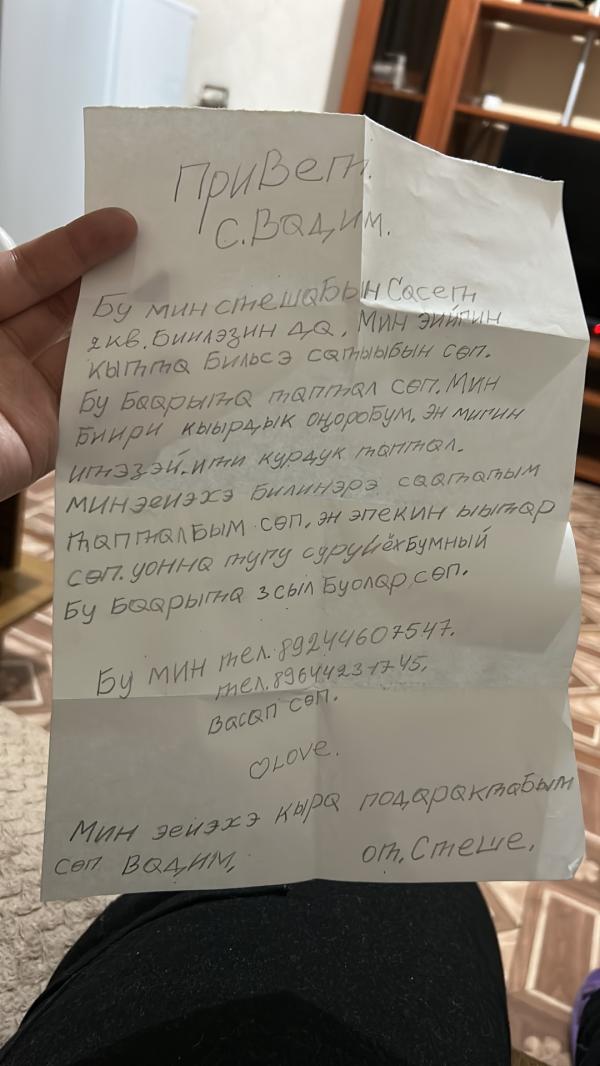 Привет.
С. Вадим.
Бу мин стешабын Сасет,
2кв. Биилэзин да, Мин эийигин
кытта Бильсэ сатыыбын сөп.
Бу Баарыта таптал сөп. Мин
Биири кыырдык оңоробум, эн мигин
итэзэй. ити курдук таптал.
Мин эеиэхэ билинэрэ саататым
таптталбым сөп, эн эпекин ыытар
сөп. уонна тупу суруйёхбумный
Бу Баарыта 3сыл Буолар, сөп.
Бу мин тел. 89244607547.
тел. 89644231745.
Васап сөп.
♡Love.
Мин эеиэхэ кыра подарактабым
сөп Вадим,
от, Стеше,